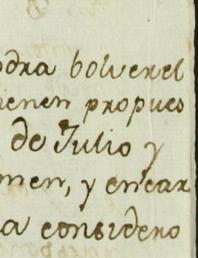 odra bolver el
ienen propues
de Julio y
men, y encar
a considero